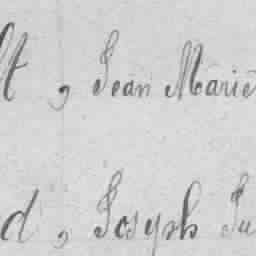 t, Jean Marie
d, Joseph Ju